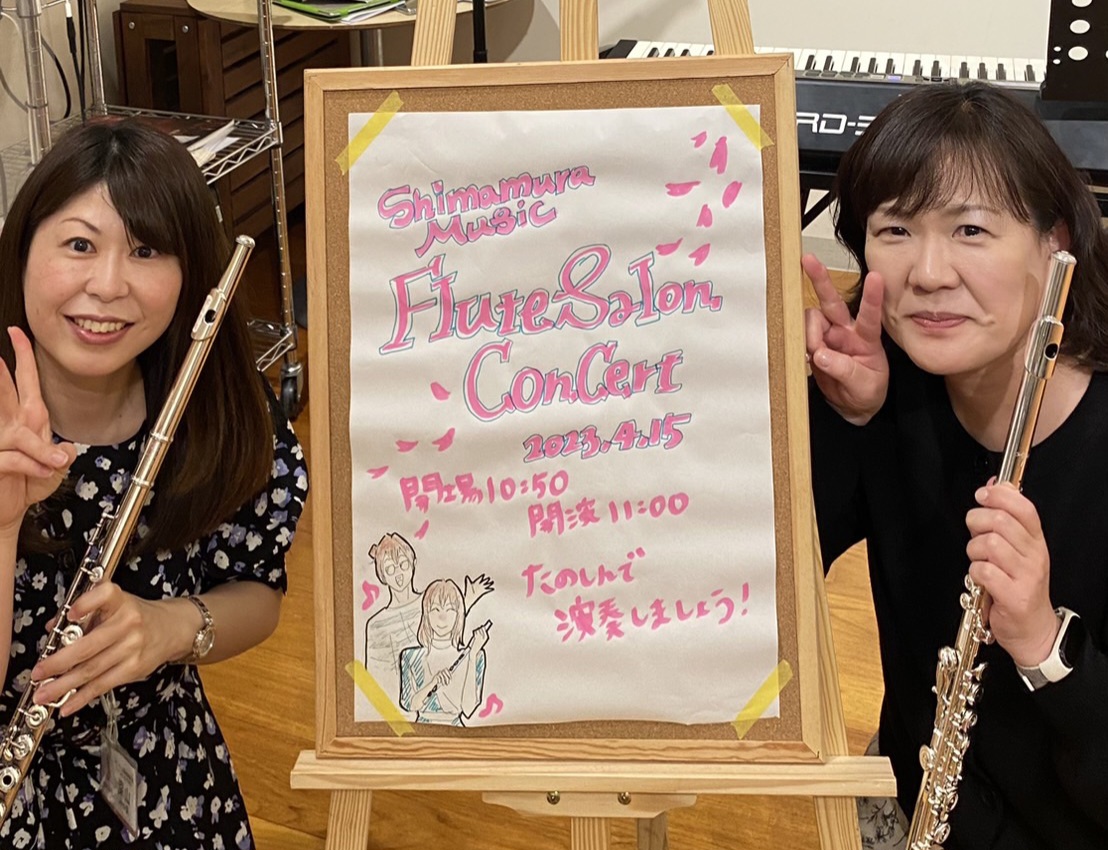 Shimamura
Music
Flute Salon
Concert
2023.4.15
開場10:50
開演11:00
たのしんで
演奏しましょう!
RD-